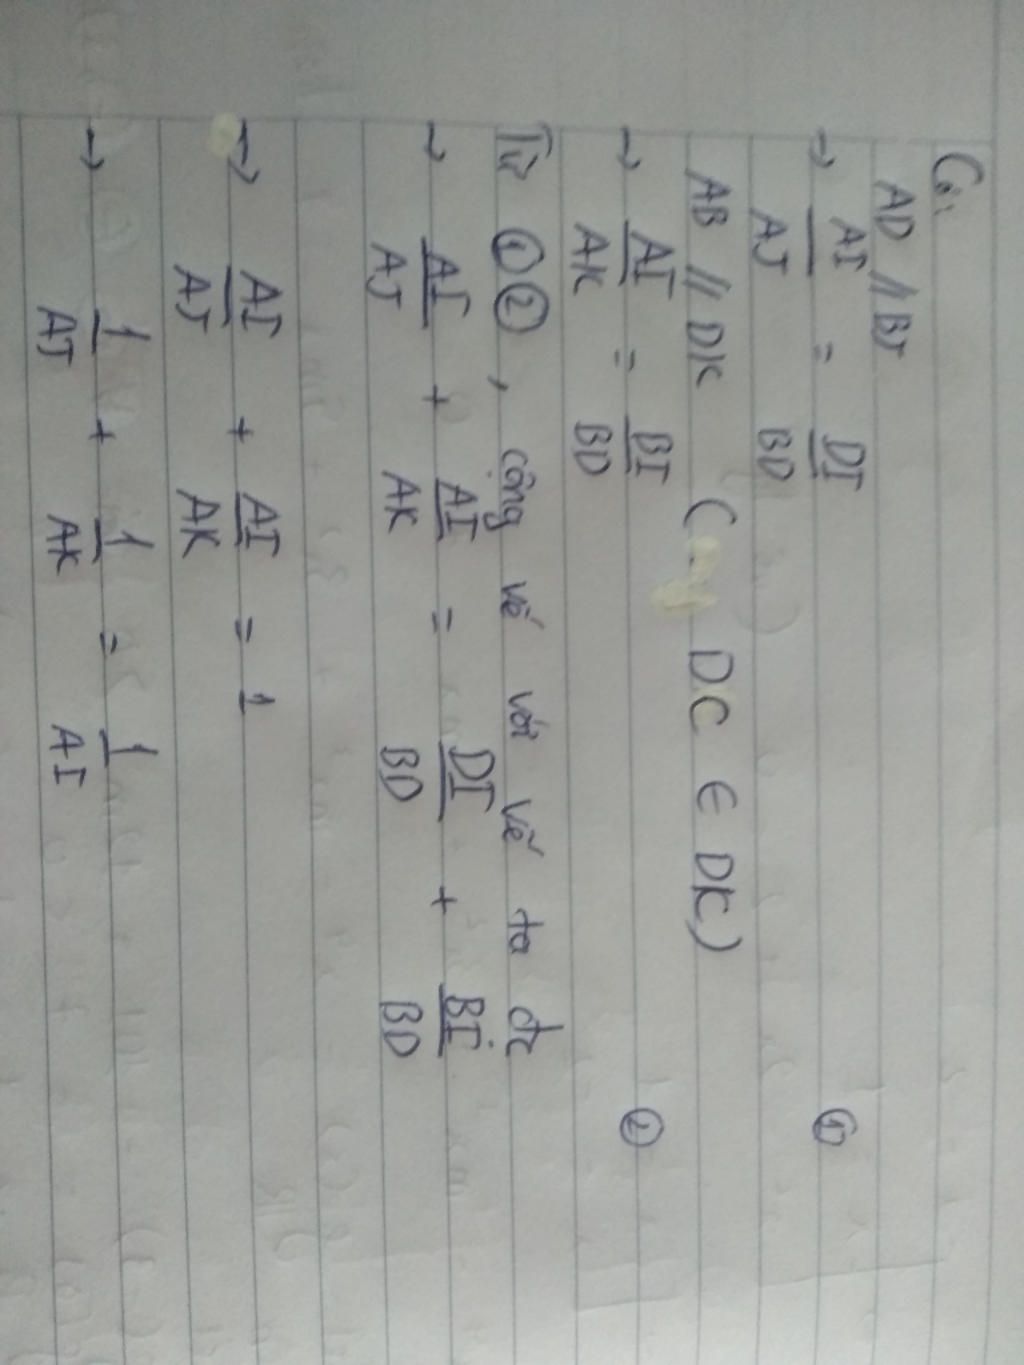 Có:
AD // BJ
→ AI/AJ = DI/BD ①
AB // DK ( DC ∈ DK)
→ AI/AK = BI/BD ②
Từ ① ② , cộng vế với vế ta đc
→ AI/AJ + AI/AK = DI/BD + BI/BD
→ AI/AJ + AI/AK = 1
→ 1/AJ + 1/AK = 1/AI